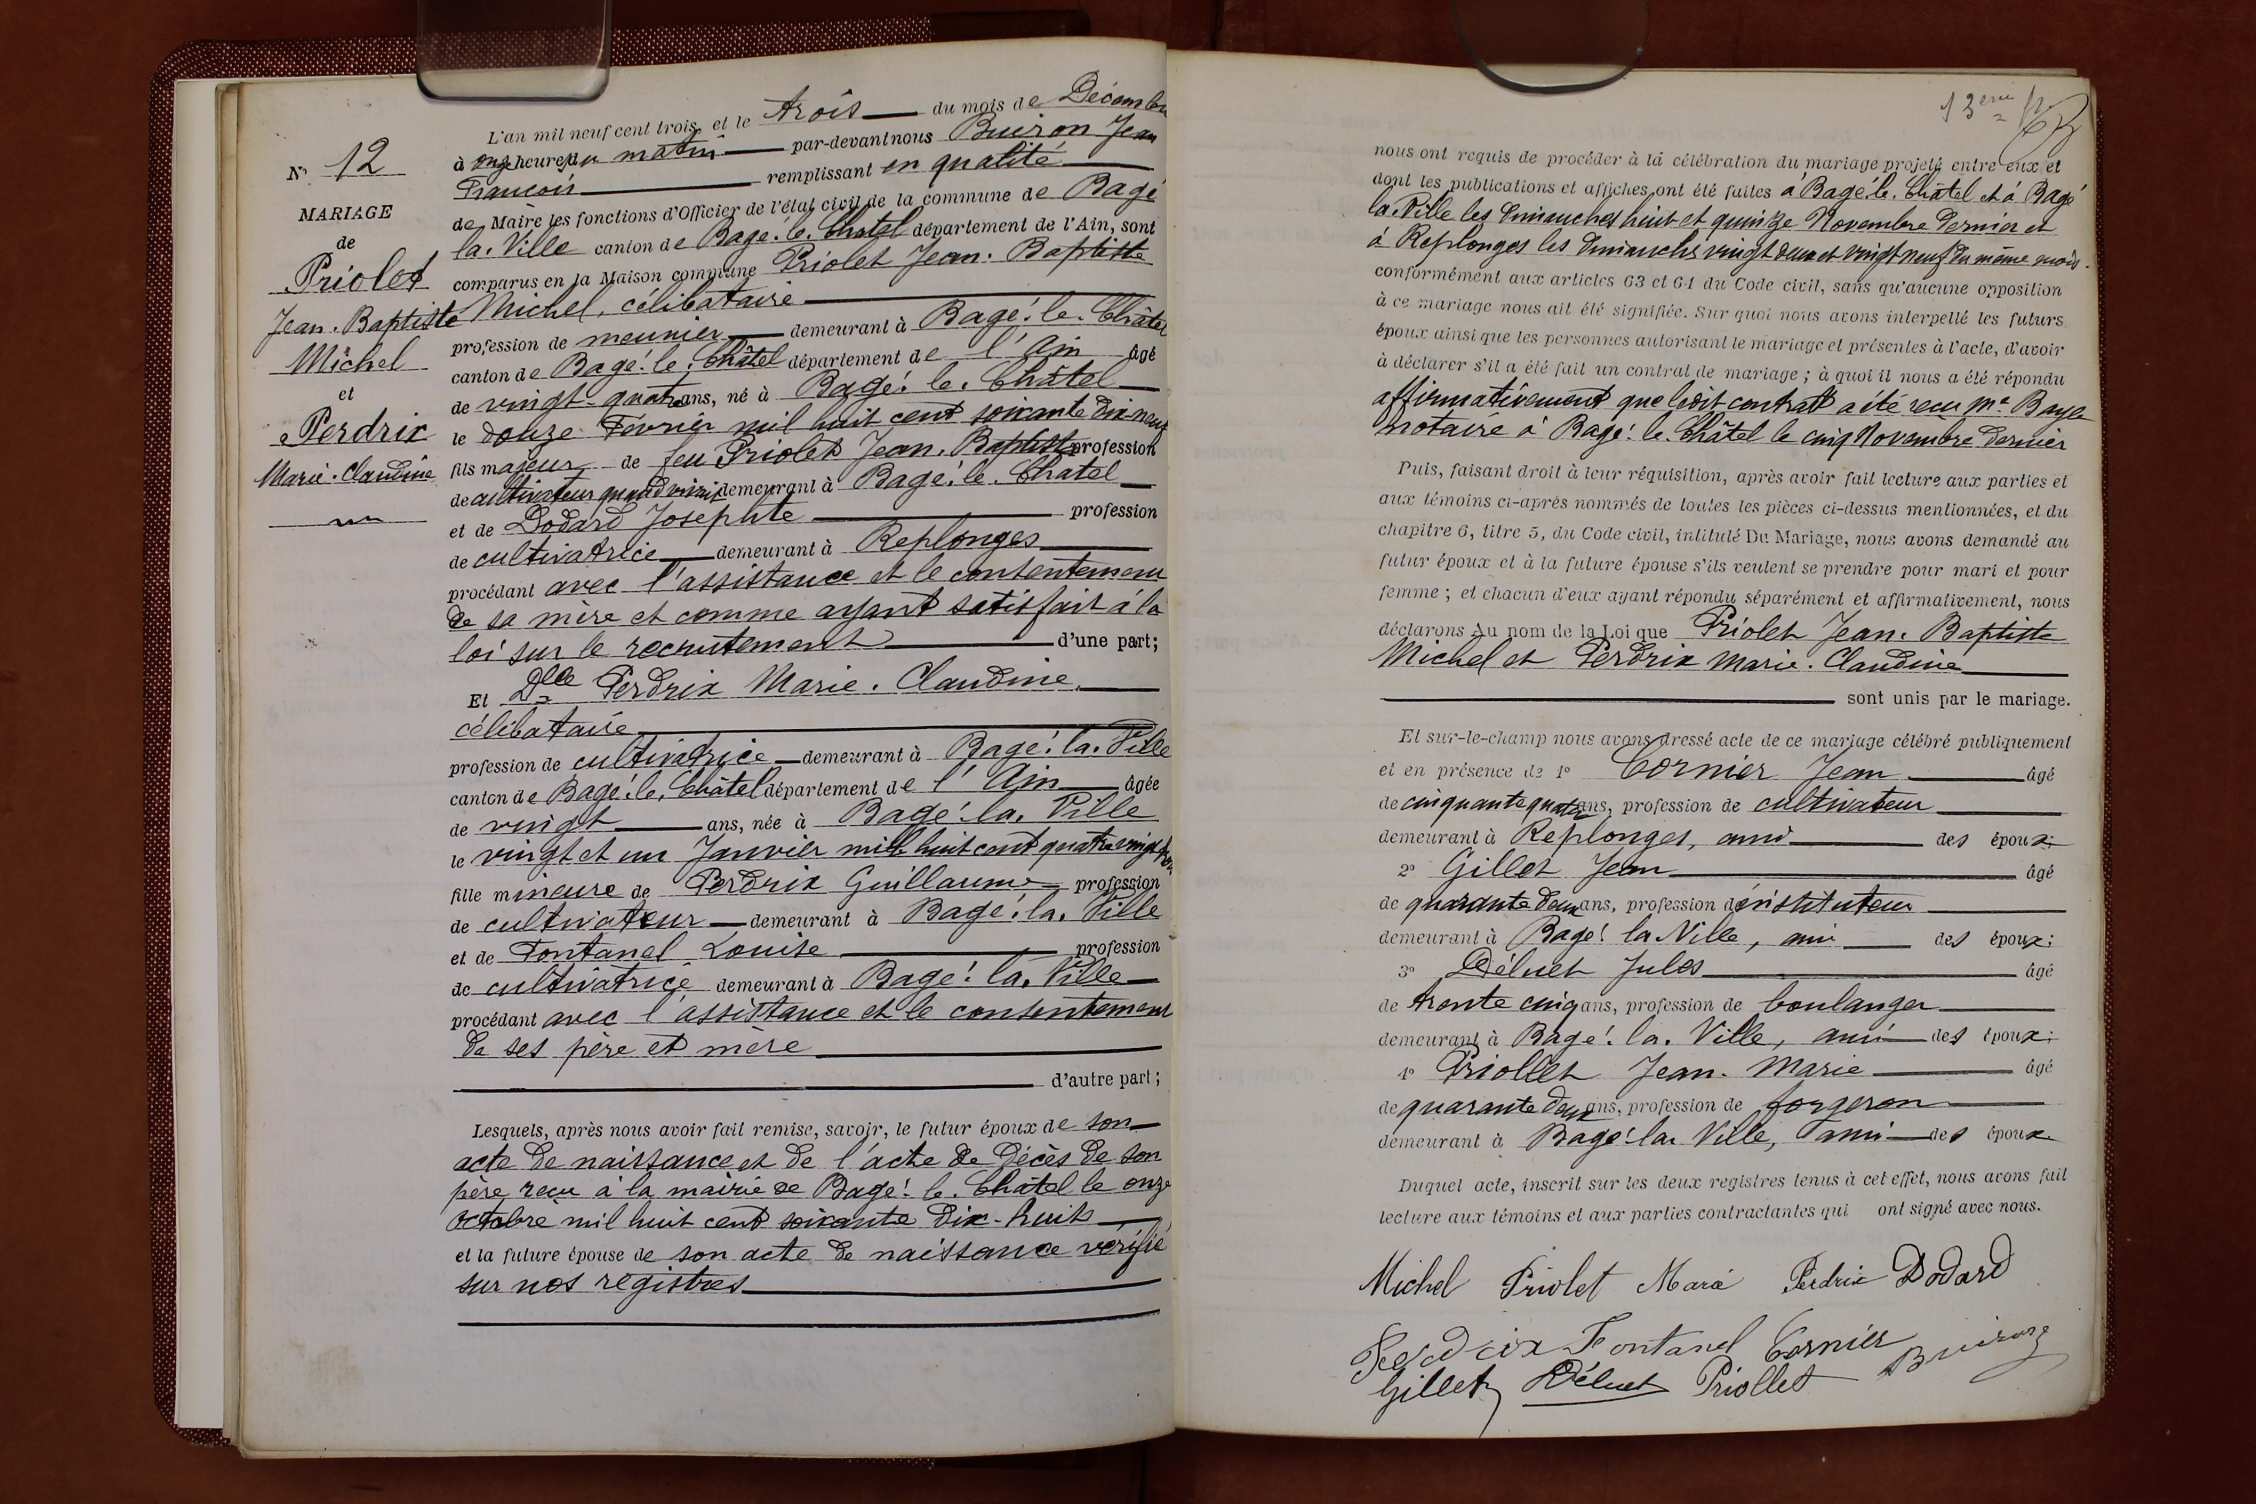 N° 12
MARIAGE
de
Priolet
Jean. Baptiste
Michel
et
Perdrix
Marie. Claudine
L'an mil neuf cent trois et le trois du mois de Décembre
à onze heures du matin par-devant nous Buiron Jean
François remplissant en qualité
de Maire les fonctions d'Officier de l'état civil de la commune de Bagé
la. Ville canton de Bagé. le. Châtel département de l'Ain, sont
comparus en la Maison commune Priolet Jean. Baptiste
Michel, célibataire
profession de meunier demeurant à Bagé. le. Châtel
canton de Bagé. le. Châtel département de l'Ain âgé
de vingt-quatre ans, né à Bagé. le. Châtel
le douze Février mil huit cent soixante dix neuf
fils majeur de feu Priolet Jean. Baptiste profession
de cultivateur quand vivait demeurant à Bagé. le. Chatel
et de Dodard Josephte profession
de cultivatrice demeurant à Replonges
procédant avec l'assistance et le consentement
de sa mère et comme ayant satisfait à la
loi sur le recrutement d'une part;
Et Dlle Perdrix Marie. Claudine.
célibataire
profession de cultivatrice demeurant à Bagé. la. Ville
canton de Bagé. le. Châtel département de l'Ain âgée
de vingt ans, née à Bagé. la. Ville
le vingt et un Janvier mil huit cent quatre vingt trois
fille mineure de Perdrix Guillaume profession
de cultivateur demeurant à Bagé. la. Ville
et de Fontanel Louise profession
de cultivatrice demeurant à Bagé. la. Ville
procédant avec l'assistance et le consentement
de ses père et mère
d'autre part;
Lesquels, après nous avoir fait remise, savoir, le futur époux de son
acte de naissance et de l'acte de décès de son
père reçu à la mairie de Bagé. le. Châtel le onze
octobre mil huit cent soixante dix-huit
et la future épouse de son acte de naissance vérifié
sur nos registres
13eme
nous ont requis de procéder à la célébration du mariage projeté entre eux et
dont les publications et affiches ont été faites à Bagé. le. Châtel et à Bagé
la. Ville les dimanches huit et quinze Novembre dernier et
à Replonges les dimanches vingt deux et vingt neuf du même mois.
conformément aux articles 63 et 64 du Code civil, sans qu'aucune opposition
à ce mariage nous ait été signifiée. Sur quoi nous avons interpellé les futurs
époux ainsi que les personnes autorisant le mariage et présentes à l'acte, d'avoir
à déclarer s'il a été fait un contrat de mariage; à quoi il nous a été répondu
affirmativement que ledit contrat a été reçu Me Baye
notaire à Bagé. le. Châtel le cinq Novembre dernier
Puis, faisant droit à leur réquisition, après avoir fait lecture aux parties et
aux témoins ci-après nommés de toutes les pièces ci-dessus mentionnées, et du
chapitre 6, titre 5, du Code civil, intitulé Du Mariage, nous avons demandé au
futur époux et à la future épouse s'ils veulent se prendre pour mari et pour
femme; et chacun d'eux ayant répondu séparément et affirmativement, nous
déclarons Au nom de la Loi que Priolet Jean. Baptiste
Michel et Perdrix Marie. Claudine
sont unis par le mariage.
Et sur-le-champ nous avons dressé acte de ce mariage célébré publiquement
et en présence de 1° Cornier Jean âgé
de cinquante quatre ans, profession de cultivateur
demeurant à Replonges, ami des époux;
2° Gillet Jean âgé
de quarante deux ans, profession d'instituteur
demeurant à Bagé. la Ville, ami des époux;
3° Déluet Jules âgé
de trente cinq ans, profession de boulanger
demeurant à Bagé. la. Ville, ami des époux;
4° Priollet Jean. Marie âgé
de quarante deux ans, profession de forgeron
demeurant à Bagé. la. Ville, ami des époux
Duquel acte, inscrit sur les deux registres tenus à cet effet, nous avons fait
lecture aux témoins et aux parties contractantes qui ont signé avec nous.
Michel Priolet Marie Perdrix Dodard
Perdrix Fontanel Cornier Buiron
Gillet Déluet Priollet